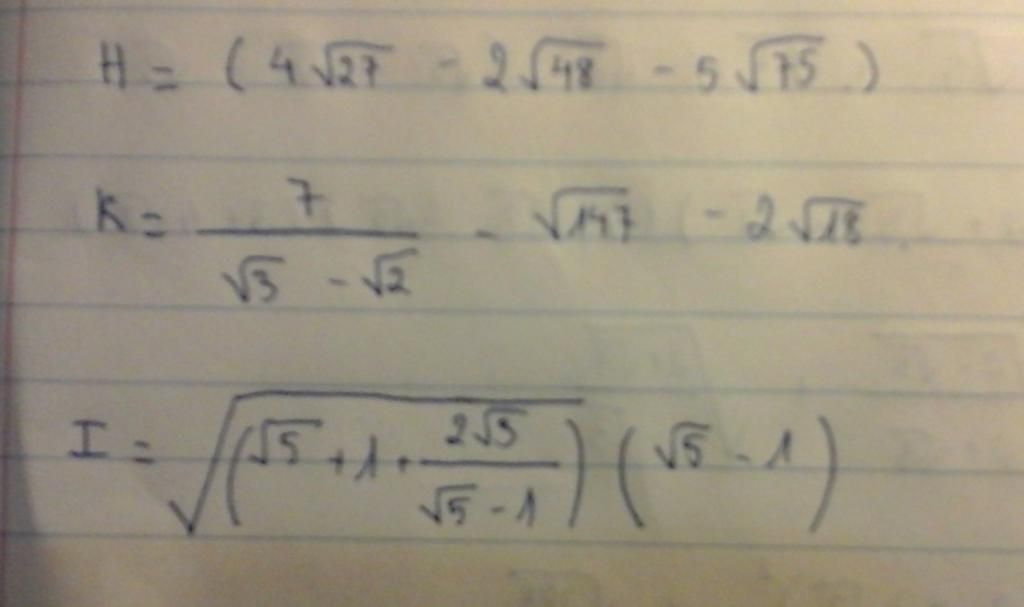 H = ( 4√27 - 2√48 - 5√75 )
K = 7/(√3 - √2) - √147 - 2√18
I = √(√5 + 1 + 2√5/(√5 - 1)) (√5 - 1)